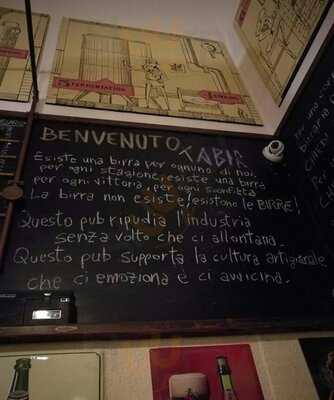 BENVENUTO
TABIR
Esiste una birra per ognuno di noi,
per ogni stagione, esiste una birra
per ogni vittoria, per ogni sconfitta
La birra non esiste! esistono le BIRRE!
Questo pub ripudia l'industria
senza volto che ci allontana.
Questo pub supporta la cultura artigianale
che ci emoziona è ci avvicina.